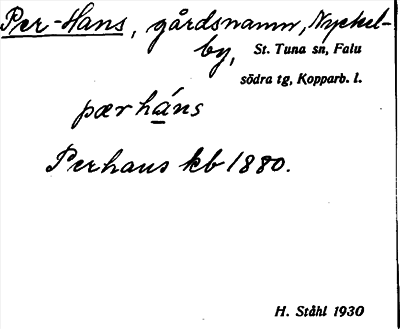 Per-Hans, gårdsnamn, Nyckel-
by, St. Tuna sn, Falu
södra tg, Kopparb. l.
pærháns
Perhans kb 1880.
H. Ståhl 1930